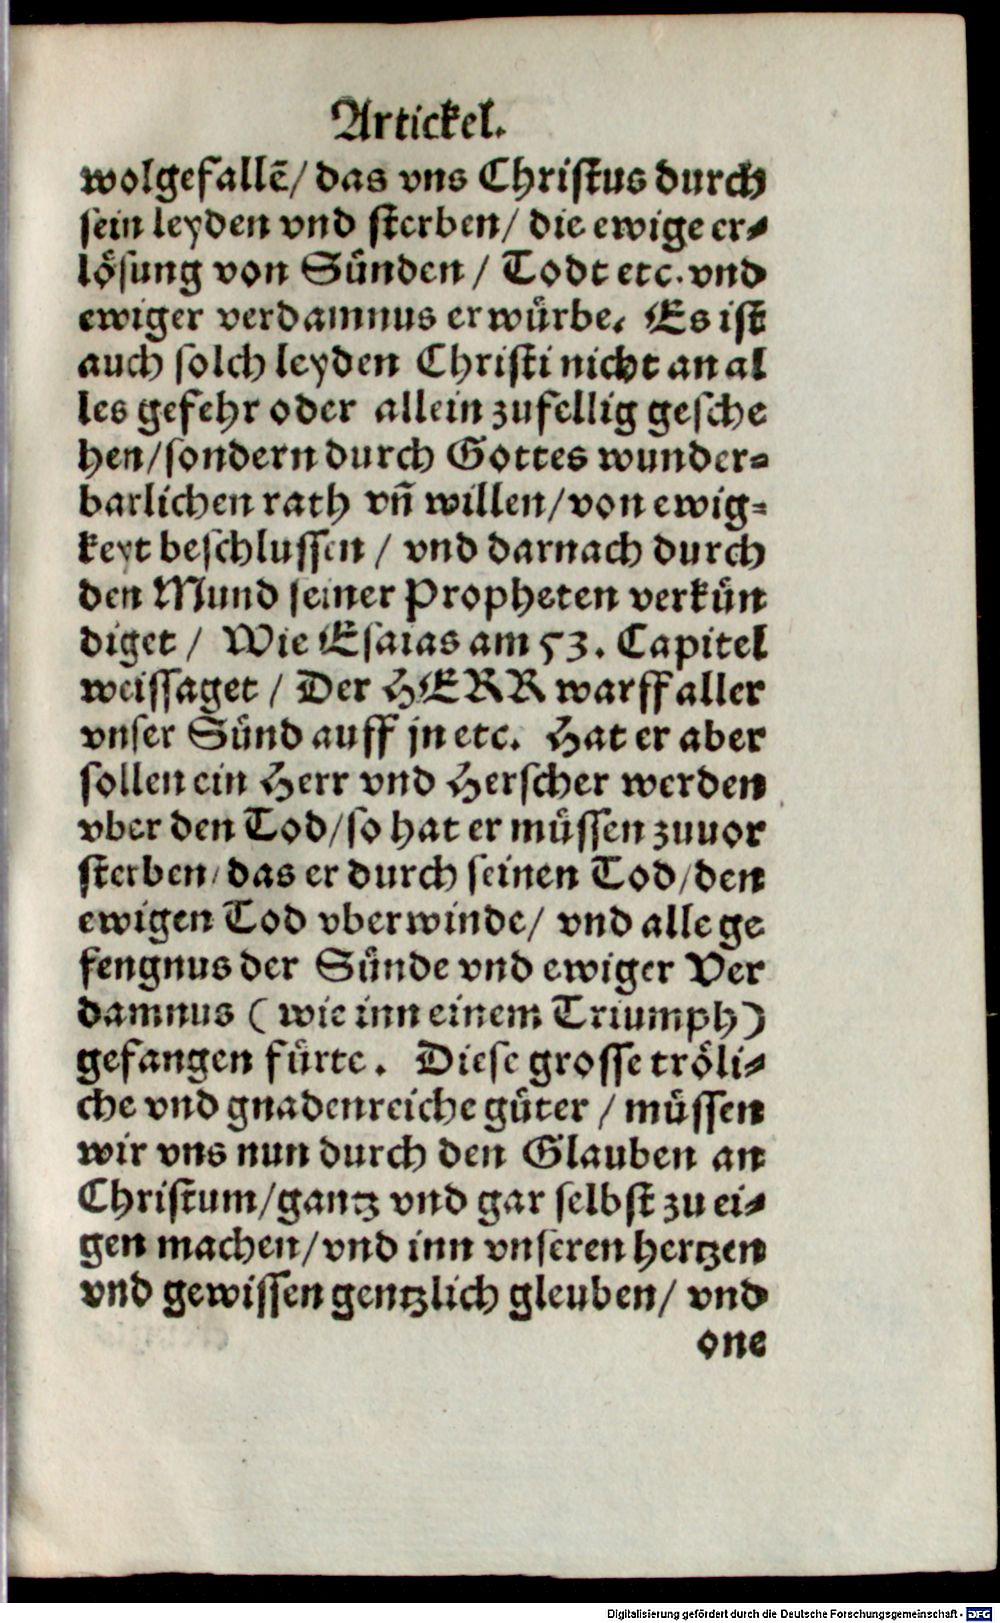 Artickel.
wolgefallē/ das vns Christus durch
sein leyden vnd sterben/ die ewige er⸗
lösung von Sünden / Todt etc. vnd
ewiger verdamnus erwürbe. Es ist
auch solch leyden Christi nicht an al
les gefehr oder allein zufellig gesche
hen/sondern durch Gottes wunder⸗
barlichen rath vn̄ willen/von ewig⸗
keyt beschlussen / vnd darnach durch
den Mund seiner Propheten verkün
diget / Wie Esaias am 53. Capitel
weissaget / Der HERR warff aller
vnser Sünd auff jn etc. Hat er aber
sollen ein Herr vnd Herscher werden
vber den Tod/so hat er müssen zuuor
sterben/ das er durch seinen Tod/den
ewigen Tod vberwinde/ vnd alle ge
fengnus der Sünde vnd ewiger Ver
damnus ( wie inn einem Triumph)
gefangen fürte. Diese grosse tröli⸗
che vnd gnadenreiche güter / müssen
wir vns nun durch den Glauben an
Christum/gantz vnd gar selbst zu ei⸗
gen machen/vnd inn vnseren hertzen
vnd gewissen gentzlich gleuben/ vnd
one
Digitalisierung gefördert durch die Deutsche Forschungsgemeinschaft - DFG